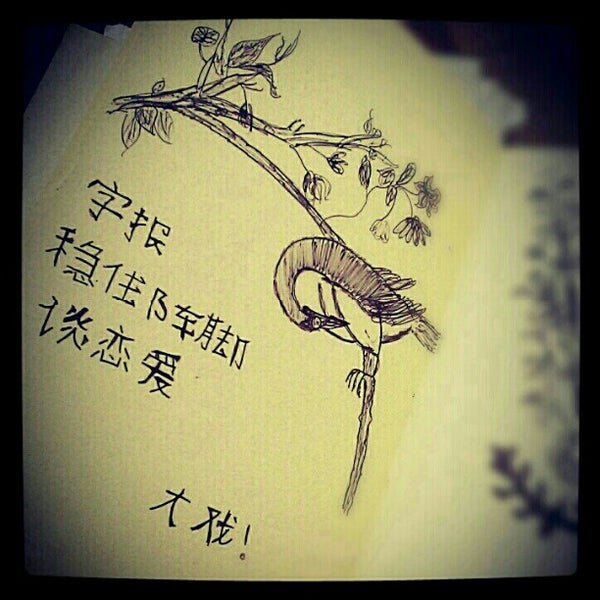 字报
稳住阵脚
谈恋爱